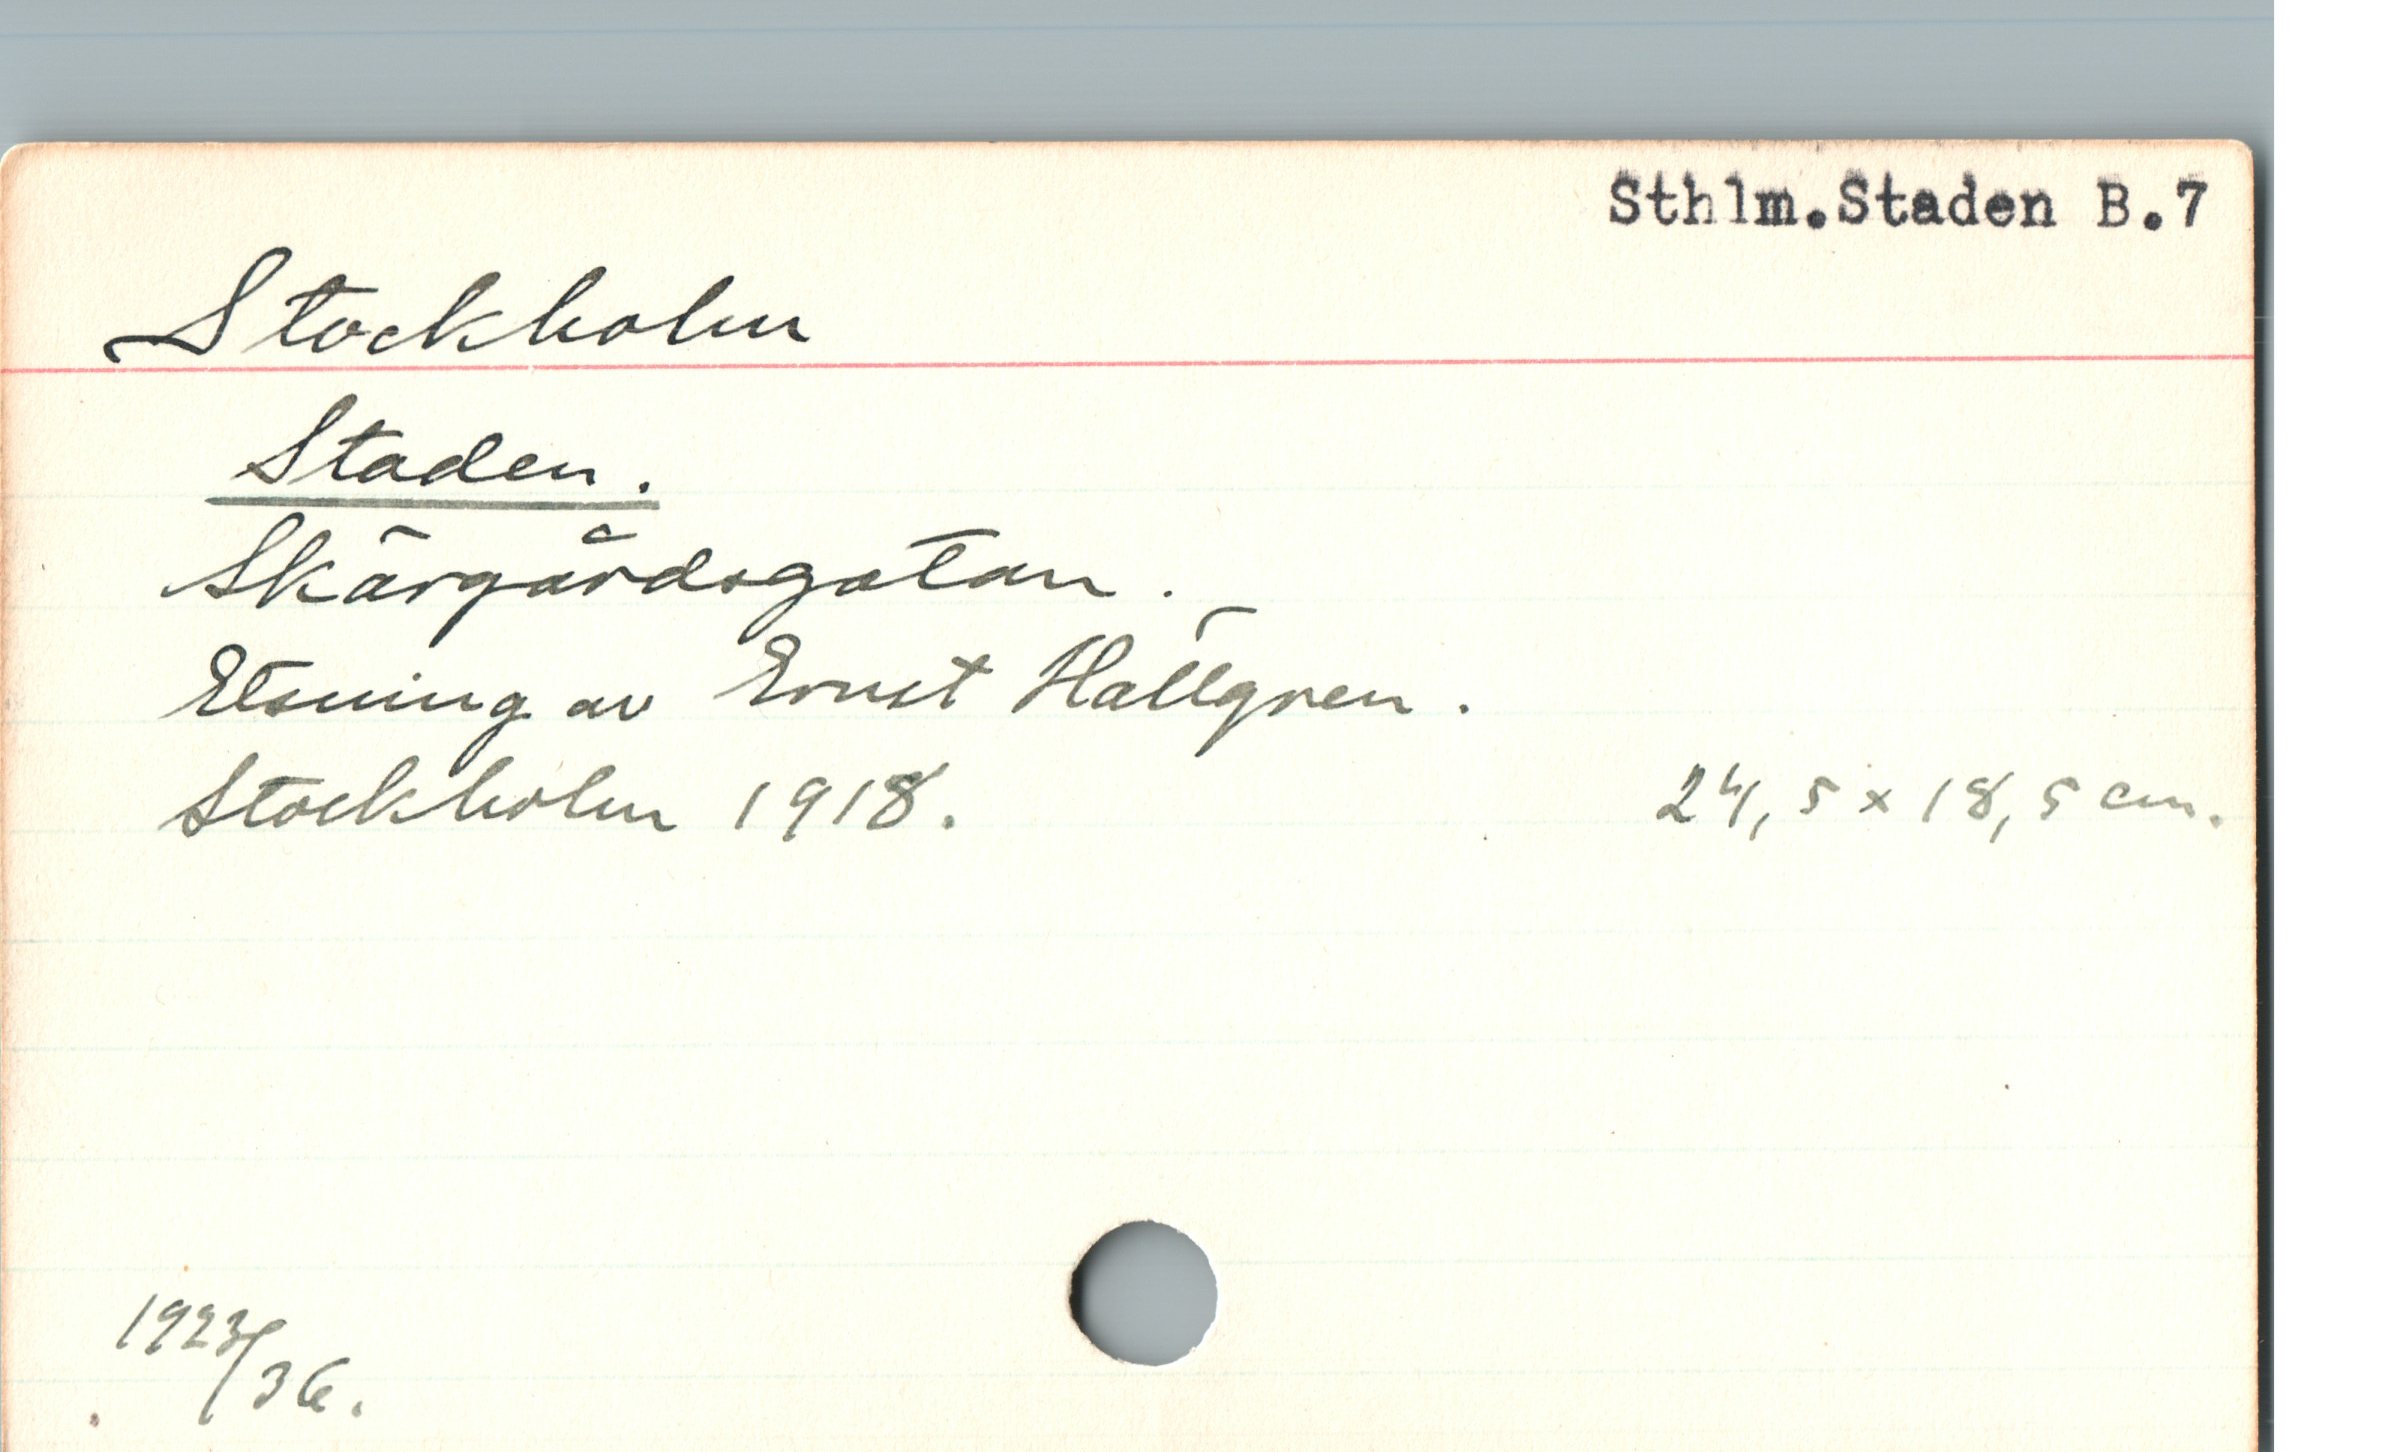 Sthlm.Staden B.7
Stockholm
Staden.
Skärgårdsgatan.
Etsning av Ernst Hällgren.
Stockholm 1918. 24,5 x 18,5 cm.
1923/36.